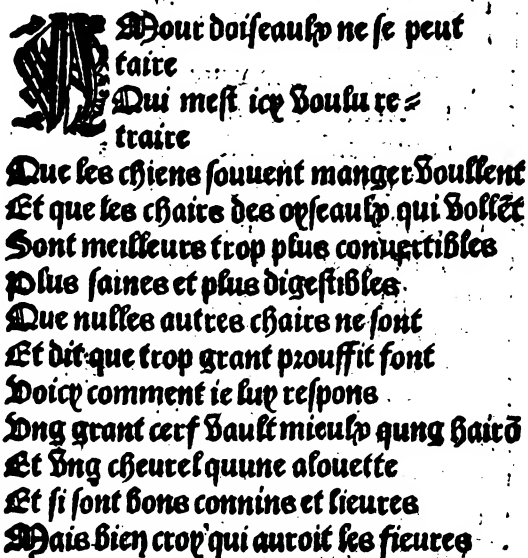 AMour doiseaulx ne se peut
taire
Qui mest icy voulu re⸗
traire
Que les chiens souuent manger voullent
Et que les chairs des oyseaulx qui vollẽt
Sont meilleurs trop plus conuertibles
Plus saines et plus digestibles
Que nulles autres chairs ne sont
Et dit que trop grant prouffit font
Voicy comment ie luy respons
Ung grant cerf vault mieulx qung hairõ
Et vng cheurel quune alouette
Et si sont bons connins et lieures
Mais bien croy qui auroit les fieures